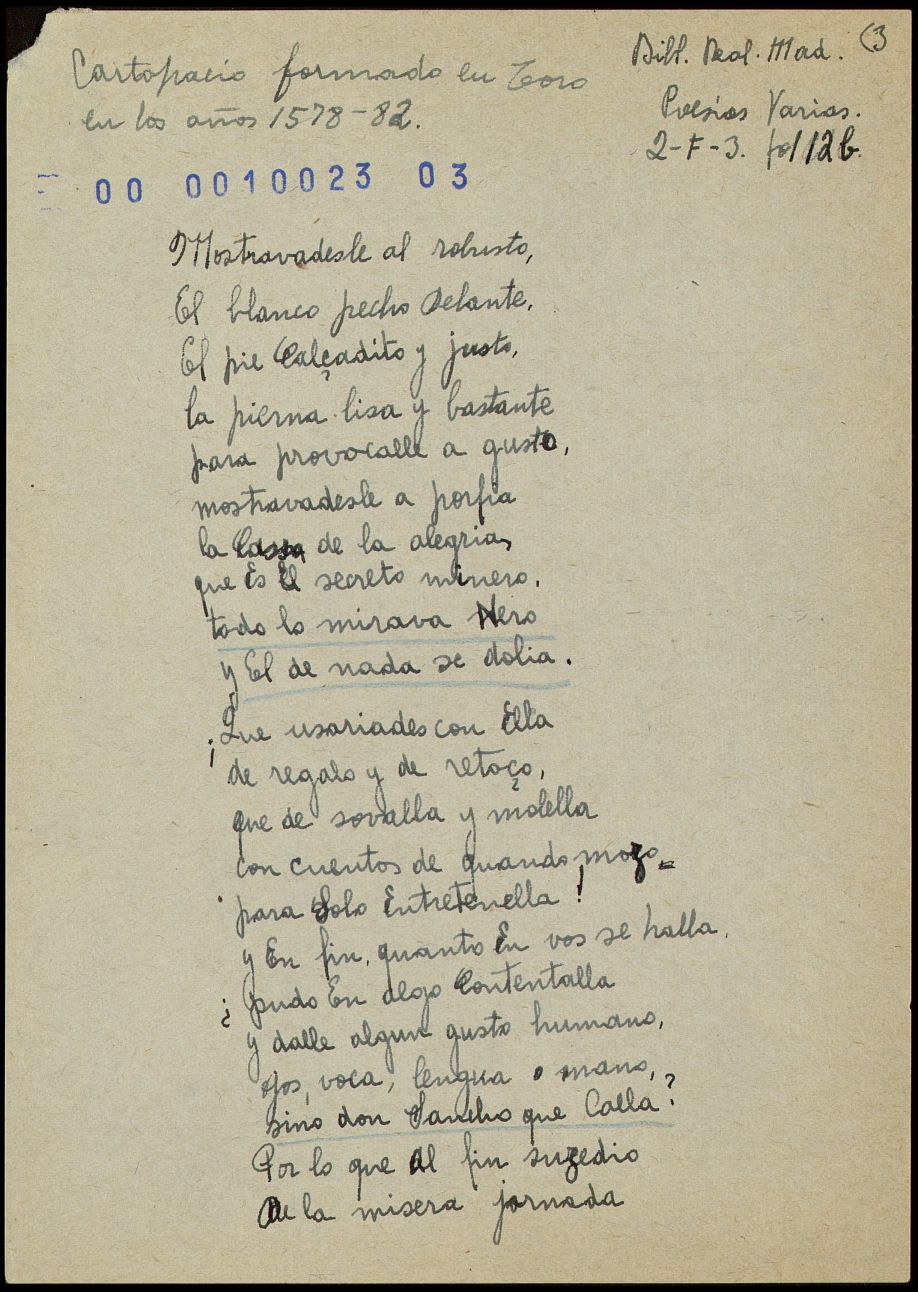 Cartapacio formado en Toro
en los años 1578-82.
Bibl. Real. Mad. (3
Poesías Varias.
2-F-3. fol 12b.
00 0010023 03
Mostravadesle al robusto,
El blanco pecho Delante,
El pie Calçadito y justo,
la pierna lisa y bastante
para provocalle a gusto,
mostravadesle a porfia
la Cassa de la alegria,
que Es El secreto minero,
todo lo mirava Nero
y El de nada se dolia.
¡Que usariades con Ella
de regalo y de retoço,
que de sovalla y molella
con cuentos de quando mozo
para Solo Entretenella!
y En fin, quanto En vos se halla,
¿pudo En algo Contentalla
y dalle algun gusto humano,
ojos, voca, lengua o mano,
sino don Sancho que Calla?
Por lo que Al fin suzedio
De la misera jornada